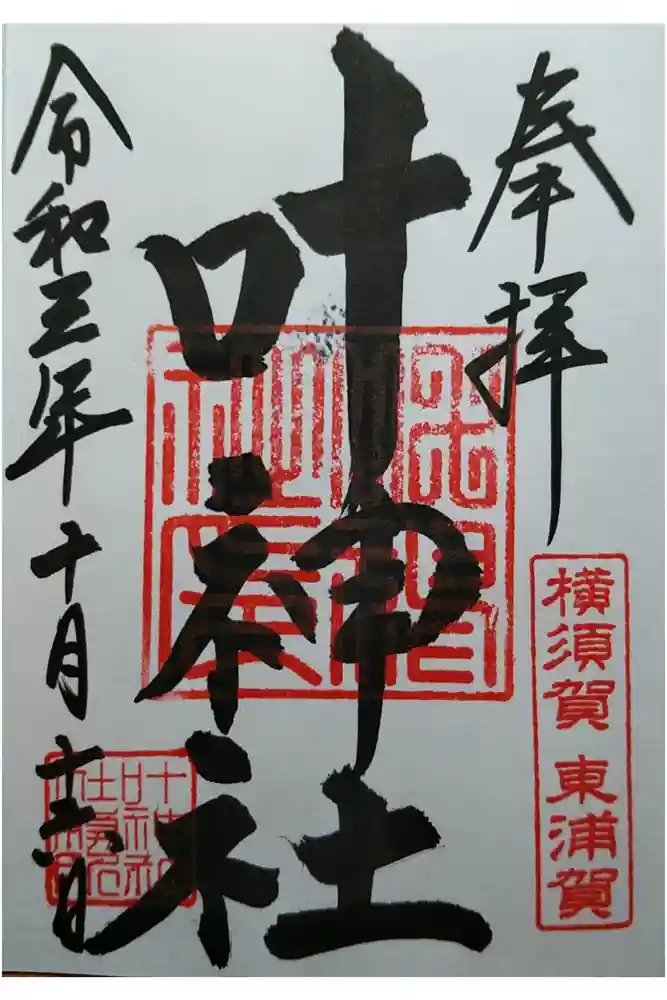 奉拝
横須賀 東浦賀
叶神社
令和三年十月日